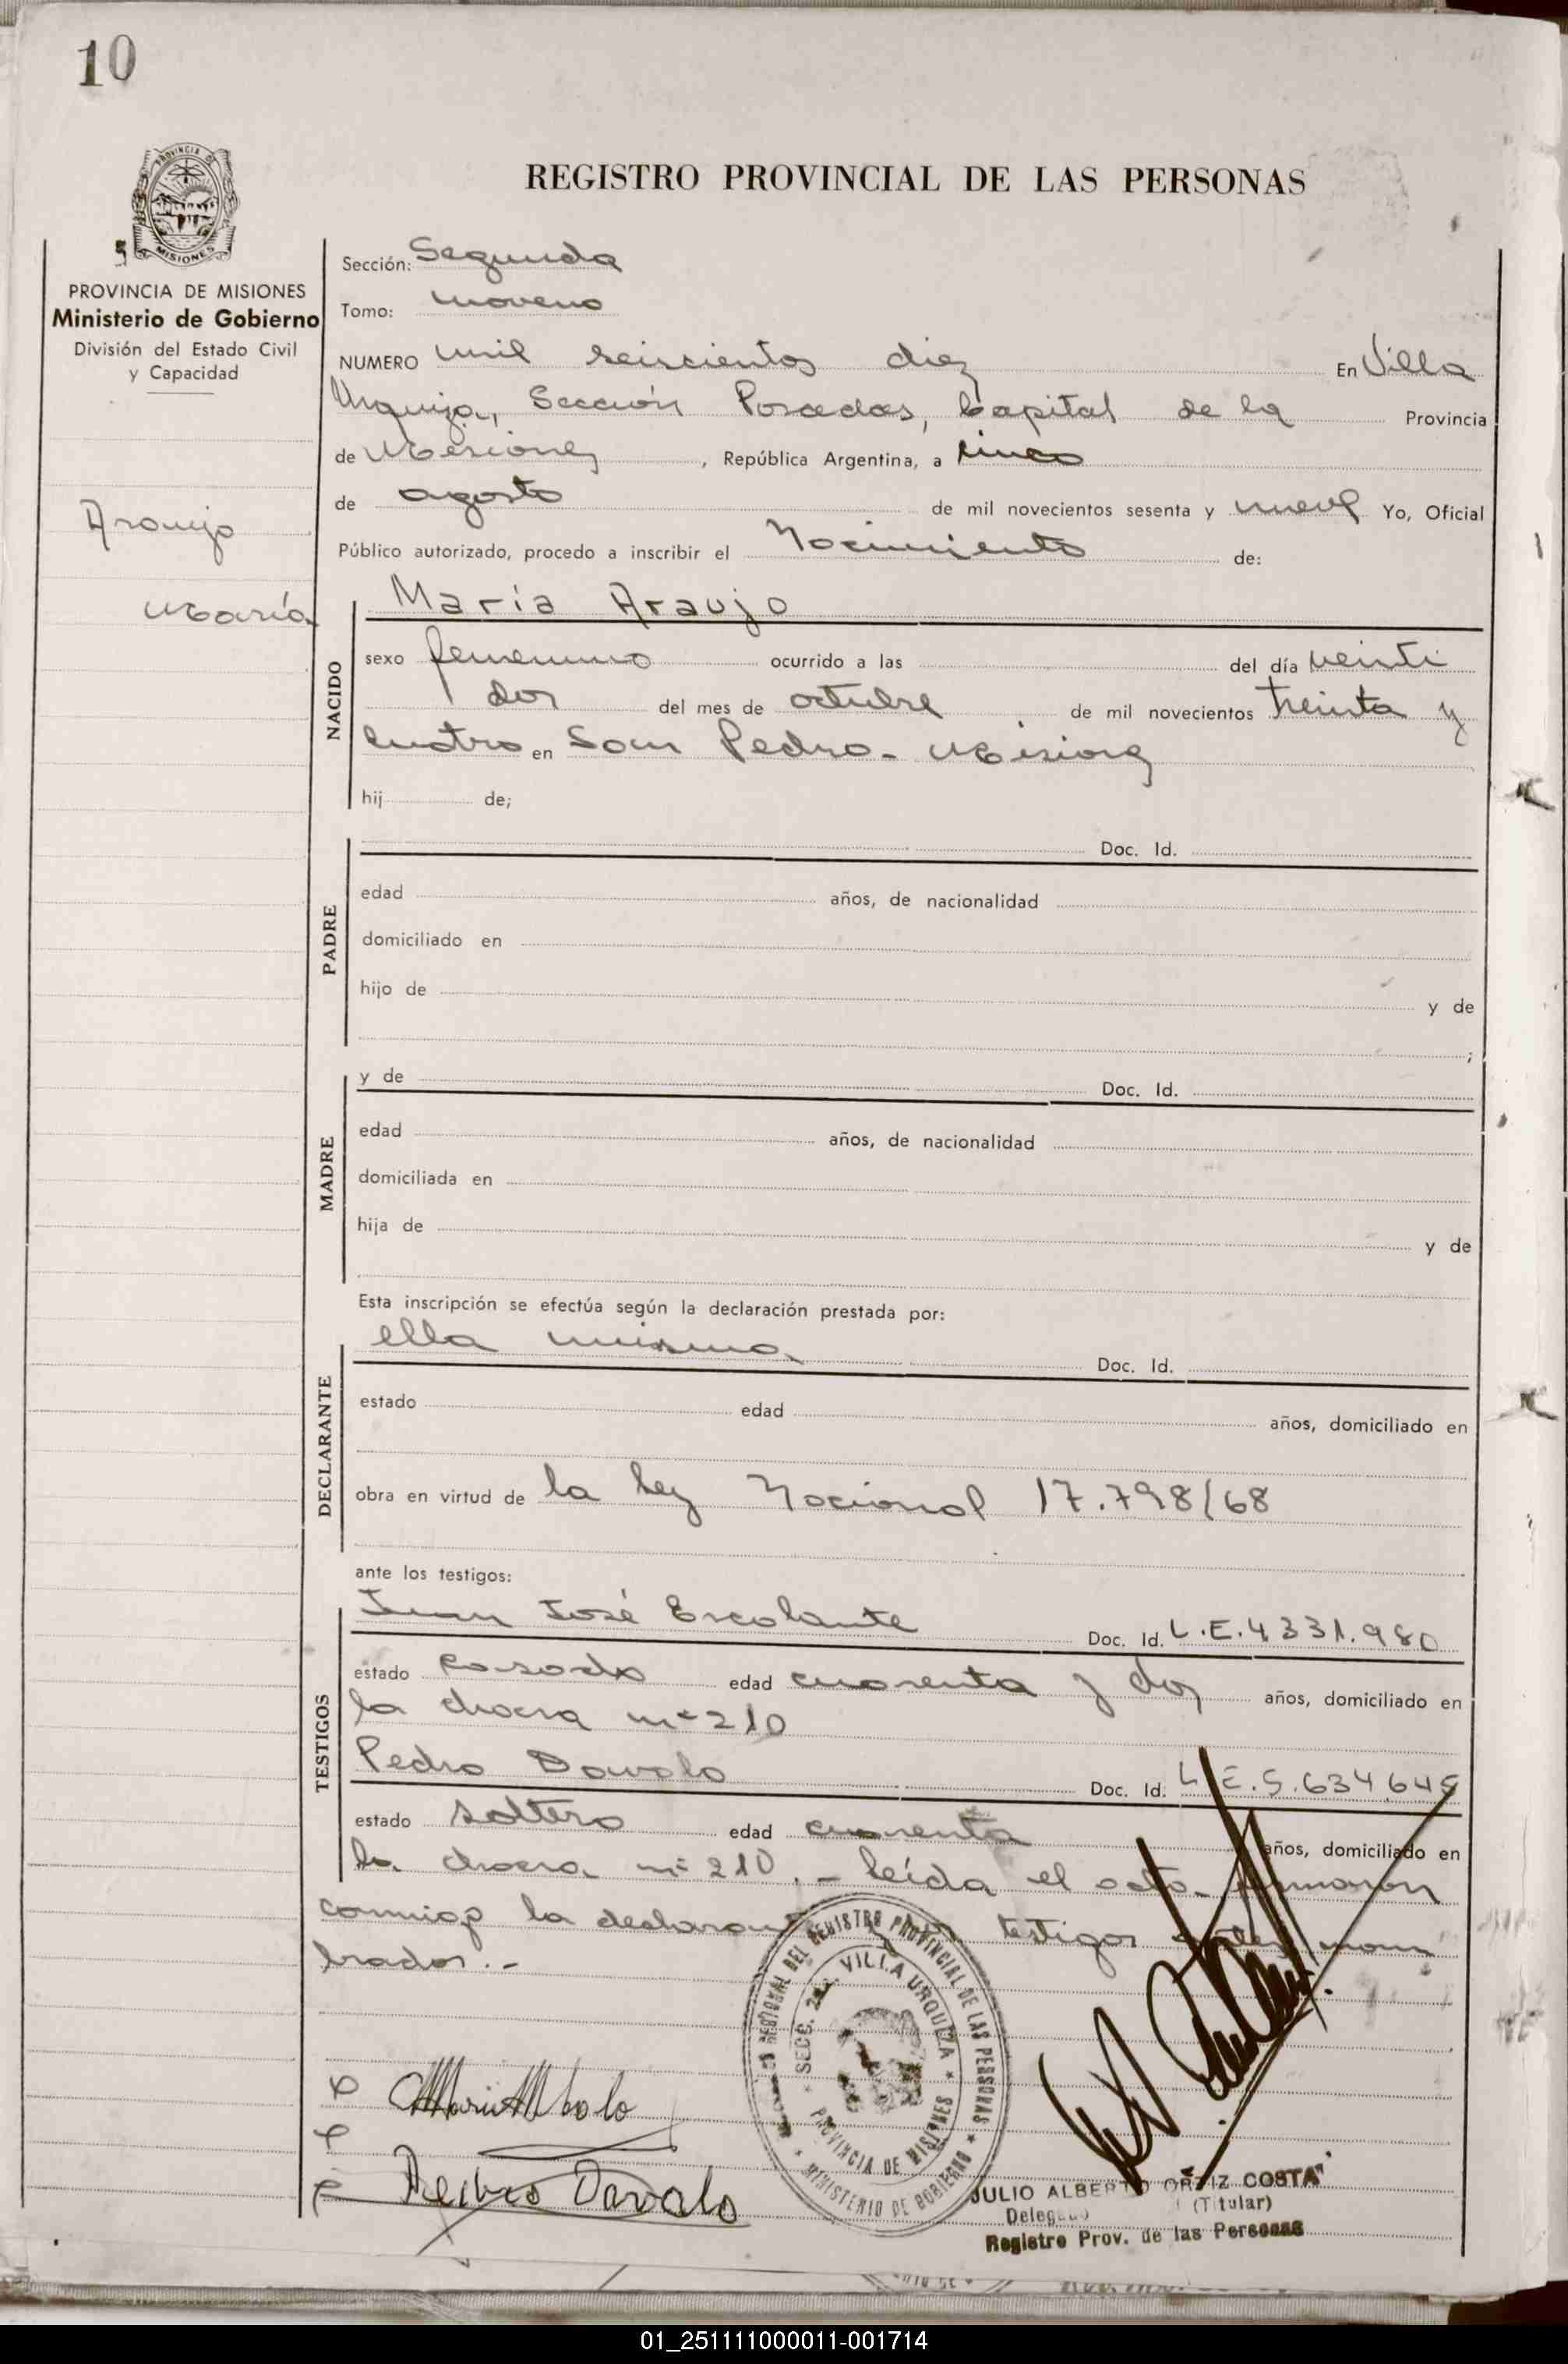 10
PROVINCIA DE MISIONES
REGISTRO PROVINCIAL DE LAS PERSONAS
PROVINCIA DE MISIONES
Ministerio de Gobierno
División del Estado Civil
y Capacidad
Araujo
María
Sección: Segunda
Tomo: noveno
NUMERO mil seiscientos diez En Villa
Urquiza, Sección Posadas, Capital de la Provincia
de Misiones, República Argentina, a cinco
de agosto de mil novecientos sesenta y nueve Yo, Oficial
Público autorizado, procedo a inscribir el Nacimiento de:
NACIDO
María Araujo
sexo femenino ocurrido a las del día veinti
dos del mes de octubre de mil novecientos treinta y
cuatro en San Pedro - Misiones
hij de;
PADRE
Doc. Id.
edad años, de nacionalidad
domiciliado en
hijo de y de
;
MADRE
y de Doc. Id.
edad años, de nacionalidad
domiciliada en
hija de y de
Esta inscripción se efectúa según la declaración prestada por:
DECLARANTE
ella misma Doc. Id.
estado edad años, domiciliado en
obra en virtud de la Ley Nacional 17.798/68
ante los testigos:
TESTIGOS
Juan José Escalante Doc. Id. L.E.4331.980
estado casado edad cuarenta y dos años, domiciliado en
la chacra nº 210
Pedro Davalo Doc. Id. L.E.5.634.645
estado soltero edad cuarenta años, domiciliado en
la chacra nº 210.- leída el acta firmaron
conmigo la declarante testigos antes nom
brados.-
REGIONAL DEL REGISTRO PROVINCIAL DE LAS PERSONAS
SECC. 2a. VILLA URQUIZA
PROVINCIA DE MISIONES
MINISTERIO DE GOBIERNO
Pedro Davalo
JULIO ALBERTO ORTIZ COSTA
Delegado (Titular)
Registro Prov. de las Personas
01_251111000011-001714